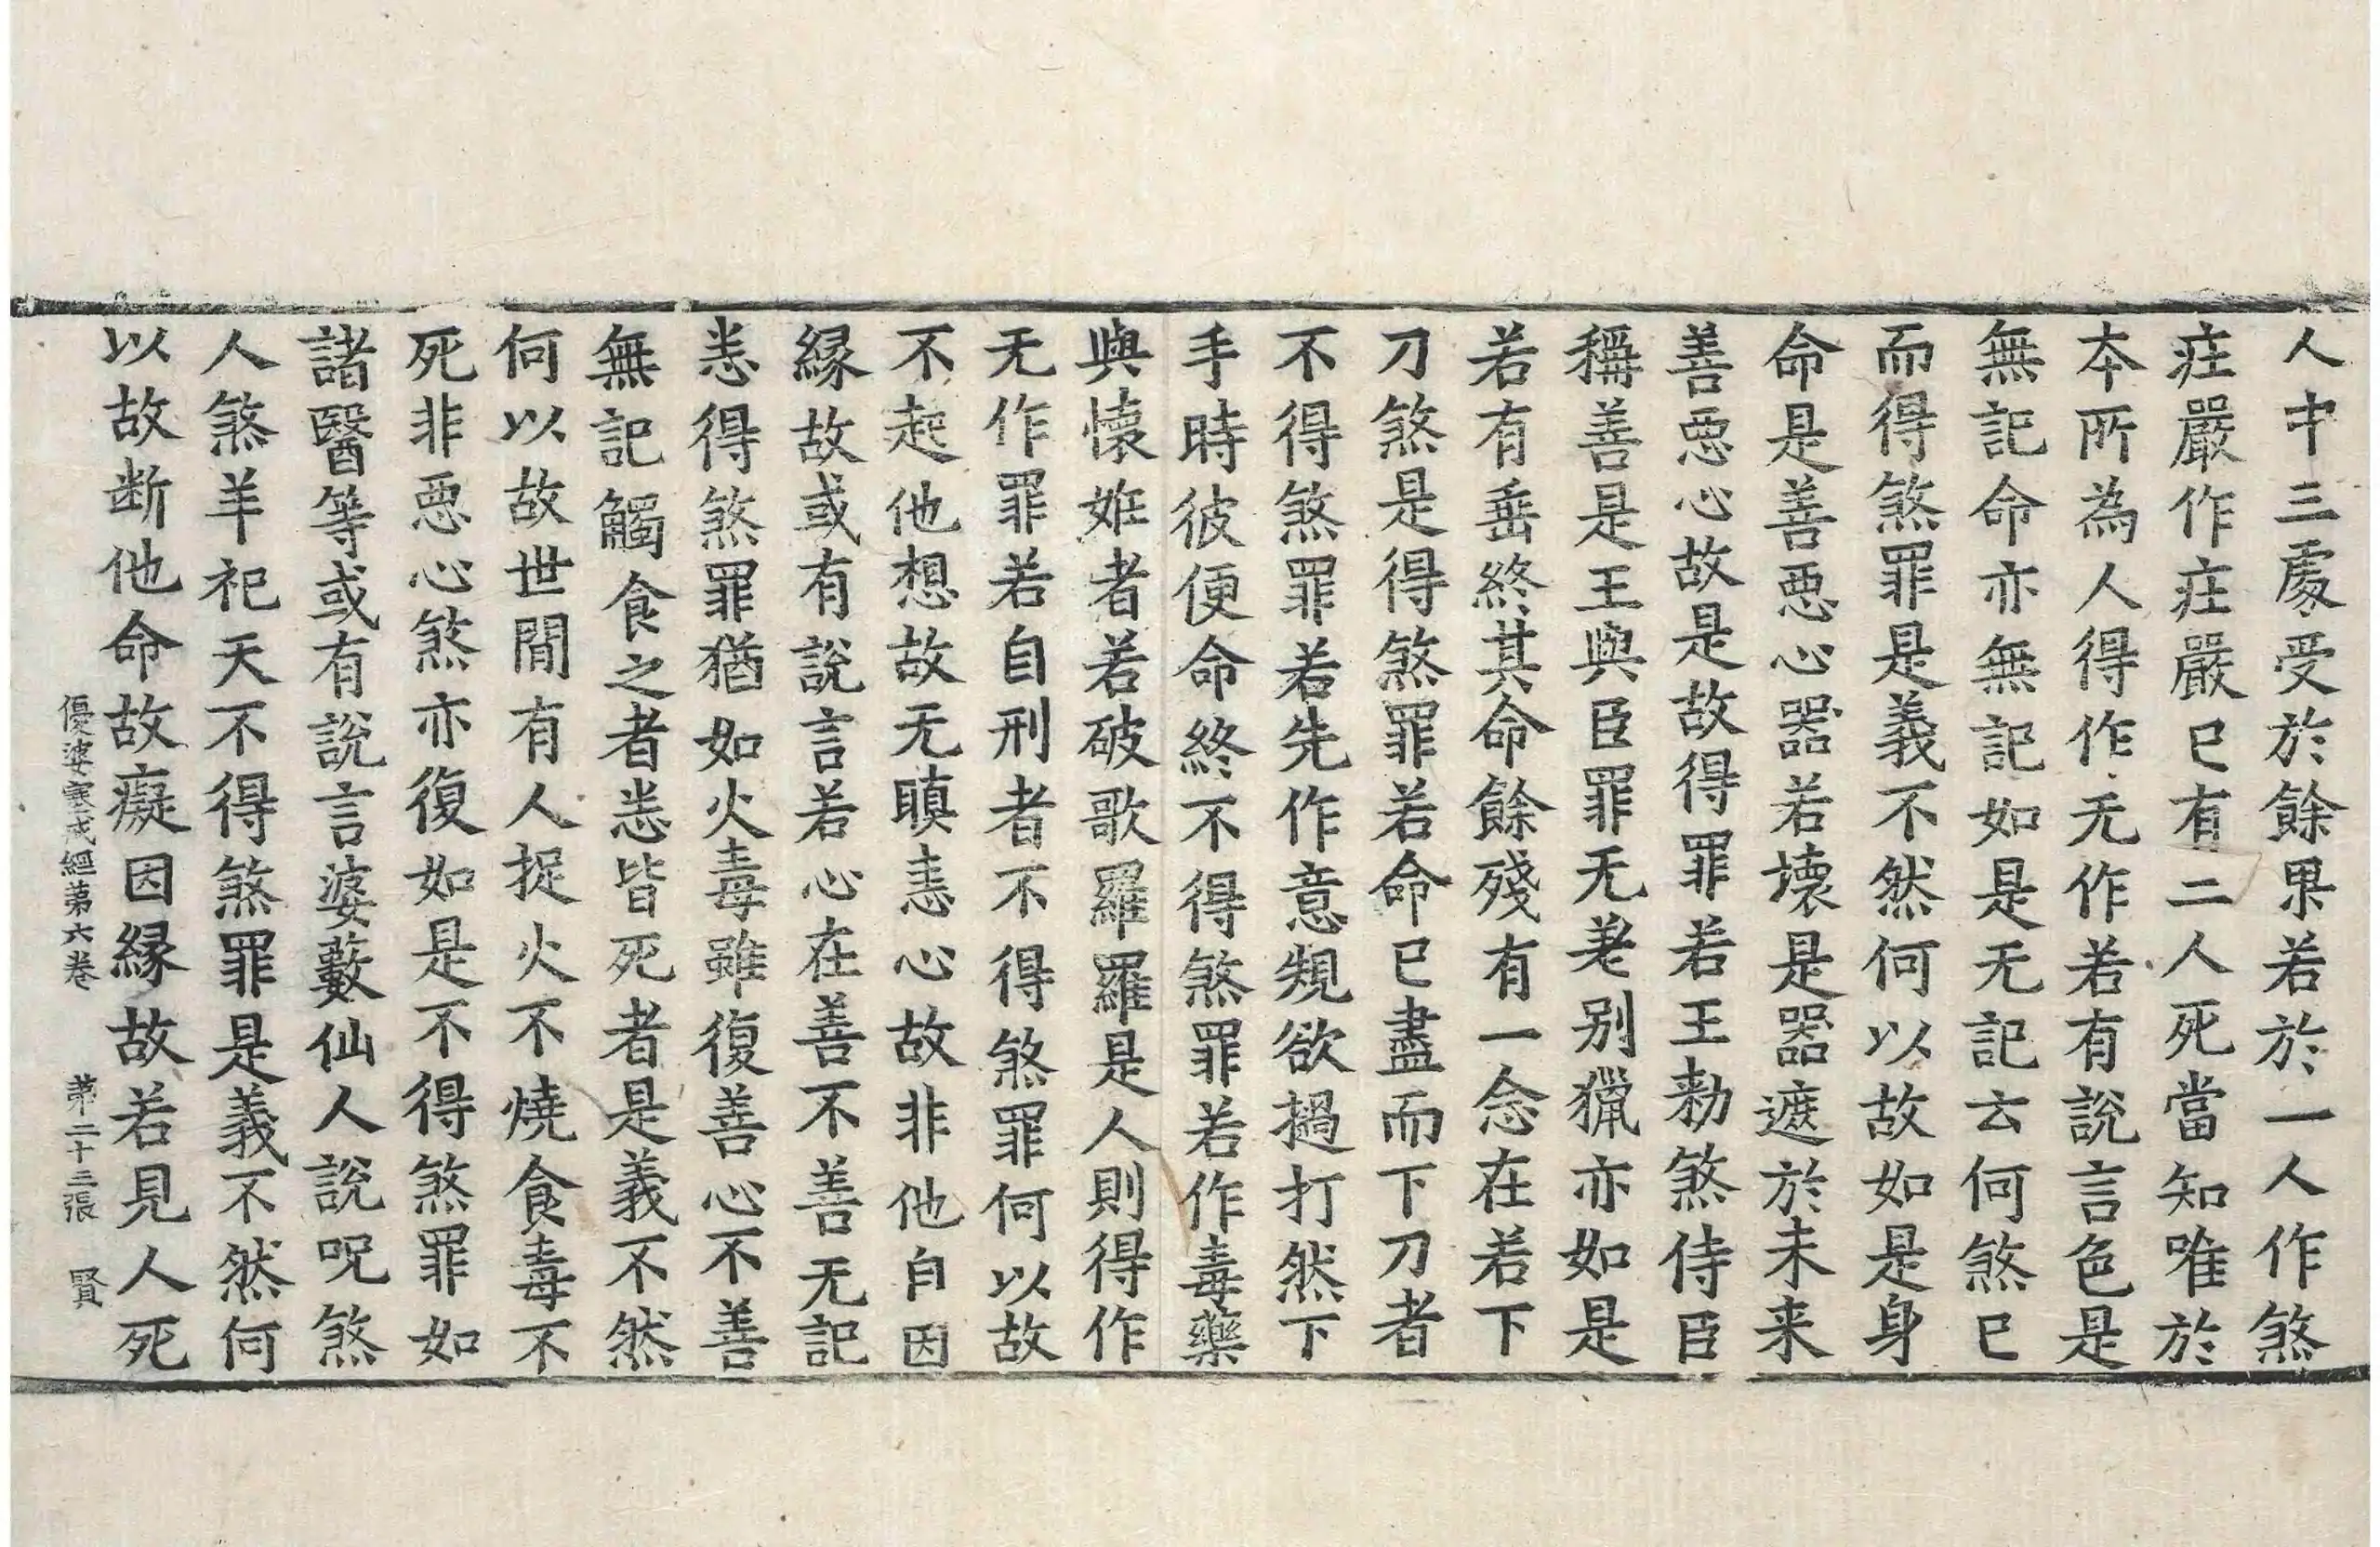 人中三處受於餘果若於一人作煞
庄嚴作庄嚴已有二人死當知唯於
本所為人得作无作若有說言色是
無記命亦無記如是无記云何煞已
而得煞罪是義不然何以故如是身
命是善惡心器若壞是器遮於未来
善惡心故是故得罪若王勑煞侍臣
稱善是王與臣罪无差别獵亦如是
若有垂終其命餘殘有一念在若下
刀煞是得煞罪若命已盡而下刀者
不得煞罪若先作意規欲撾打然下
手時彼便命終不得煞罪若作毒藥
與懷姙者若破歌羅羅是人則得作
无作罪若自刑者不得煞罪何以故
不起他想故无瞋恚心故非他自因
縁故或有說言若心在善不善无記
恙得煞罪猶如火毒雖復善心不善
無記觸食之者恙皆死者是義不然
何以故世間有人捉火不燒食毒不
死非惡心煞亦復如是不得煞罪如
諸醫等或有說言婆藪仙人說呪煞
人煞羊祀天不得煞罪是義不然何
以故断他命故癡因縁故若見人死
優婆塞戒經第六卷 第二十三張 賢